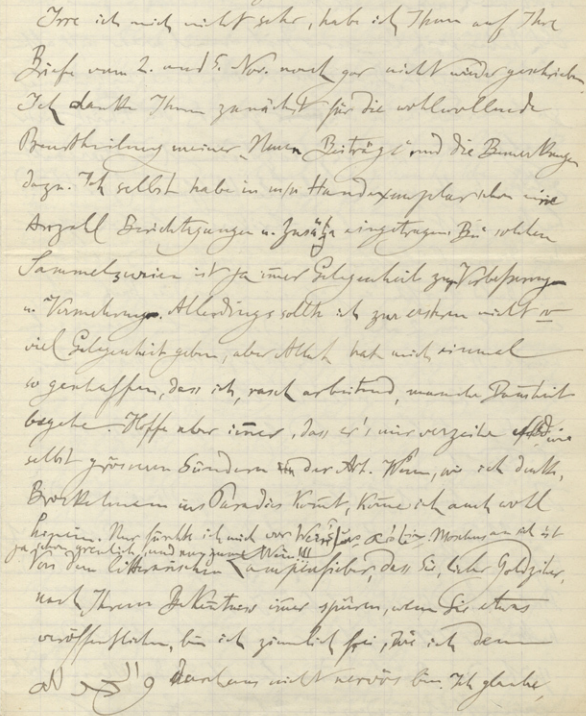 Irre ich mich nicht sehr, habe ich Ihnen auf Ihre
Briefe vom 2. und 5. Nov. noch gar nicht wieder geschrieben.
Ich danke Ihnen zunächst für die wohlwollende
Beurtheilung meiner „Neuen Beiträge“ und die Bemerkungen
dazu. Ich selbst habe in m/n Handexemplar schon eine
Anzahl Berichtigungen u. Zusätze eingetragen. Bei solchen
ist ja immer Gelegenheit zur Verbesserung
u. Vermehrung. Allerdings sollte ich zur ersteren nicht so
viel Gelegenheit geben, aber Allah hat mich einmal
so geschaffen, dass ich, rasch arbeitend, manche Dummheit
begehe. Hoffe aber immer, dass er's mir verzeihe
selbst grösseren Sündern der Art. Wenn, wie ich denke,
Brockelmann ins Paradies kommt, komme ich auch wohl
hinein. Nur fürchte ich mich vor Moschus an sich ist
ja schon greulich, und nun zum Wein!!!
Von dem litterarischen Lampenfieber, dass Sie, lieber Goldziher,
nach Ihrem Bekenntnis immer spüren, wenn Sie etwas
veröffentlichen, bin ich ziemlich frei, wie ich denn
durchaus nicht nervös bin. Ich glaube,